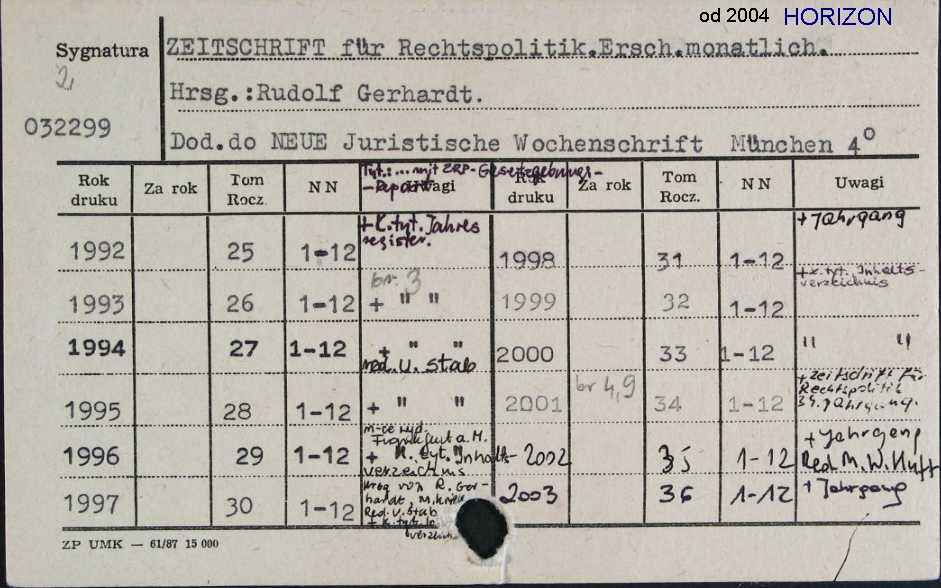 od 2004 HORIZON
Sygnatura
ZEITSCHRIFT für Rechtspolitik.Ersch.monatlich.
032299
Hrsg.:Rudolf Gerhardt.
Dod.do NEUE Juristische Wochenschrift München 4°
Tyt.:...mit ZRP-Gesetzgebungs-
-Report
Rok druku Za rok Tom Rocz. NN Uwagi Rok druku Za rok Tom Rocz. NN Uwagi
1992 25 1-12 + k.tyt. Jahres
register. 1998 31 1-12 + Jahrgang
1993 26 1-12 br. 3
+ " " 1999 32 1-12 + k.tyt. Inhalts-
verzeichnis
1994 27 1-12 + " "
red. U. Stab 2000 33 1-12 " "
1995 28 1-12 + " " 2001 br 4,9 34 1-12 + Zeitschrift für
Rechtspolitik
34. Jahrgang.
1996 29 1-12 m-ce wyd.
Frankfurt a.M.
+ K. tyt. Inhalts-
verzeichnis 2002 35 1-12 + Jahrgang
Red M. W. Huff
1997 30 1-12 Hrsg von R. Ger-
hardt, M.
Red. U. Stab
+ k. tyt. 2003 36 1-12 + Jahrgang
ZP UMK — 61/87 15 000